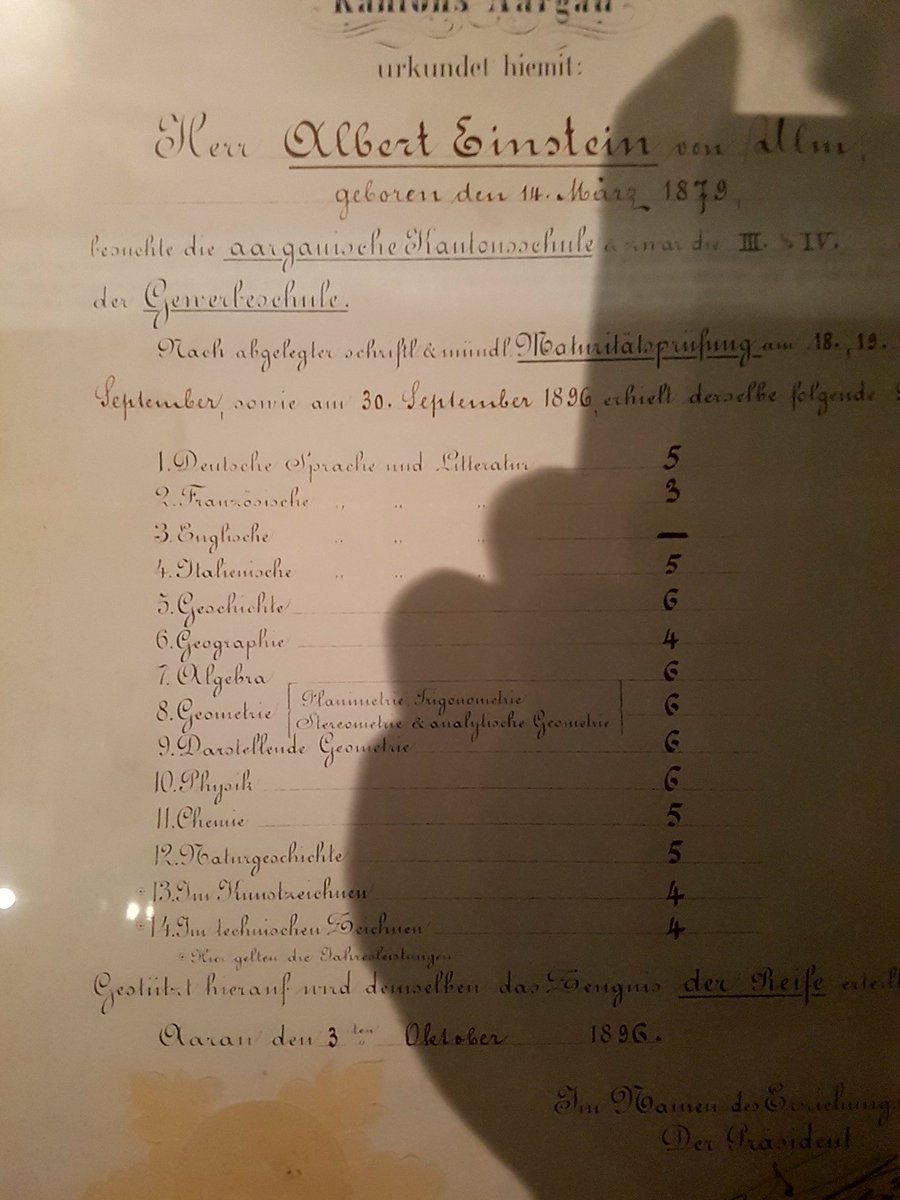 Kantons Aargau
urkundet hiemit:
Herr Albert Einstein von Ulm,
geboren den 14. März 1879,
besuchte die aargauische Kantonsschule & zwar die III. & IV.
der Gewerbeschule.
Nach abgelegter schriftl. & mündl. Maturitätsprüfung am 18., 19.
September, sowie am 30. September 1896, erhielt derselbe folgende
1. Deutsche Sprache und Litteratur 5
2. Französische „ „ „ 3
3. Englische „ „ „ —
4. Italienische „ „ „ 5
5. Geschichte 6
6. Geographie 4
7. Algebra 6
8. Geometrie [Planimetrie, Trigonometrie 6
Stereometrie & analytische Geometrie]
9. Darstellende Geometrie 6
10. Physik 6
11. Chemie 5
12. Naturgeschichte 5
* 13. Im Kunstzeichnen 4
* 14. Im technischen Zeichnen 4
* Hier gelten die Jahresleistungen
Gestützt hierauf wird demselben das Zeugnis der Reife erteilt
Aarau den 3ten Oktober 1896.
Im Namen des Erziehung
Der Präsident